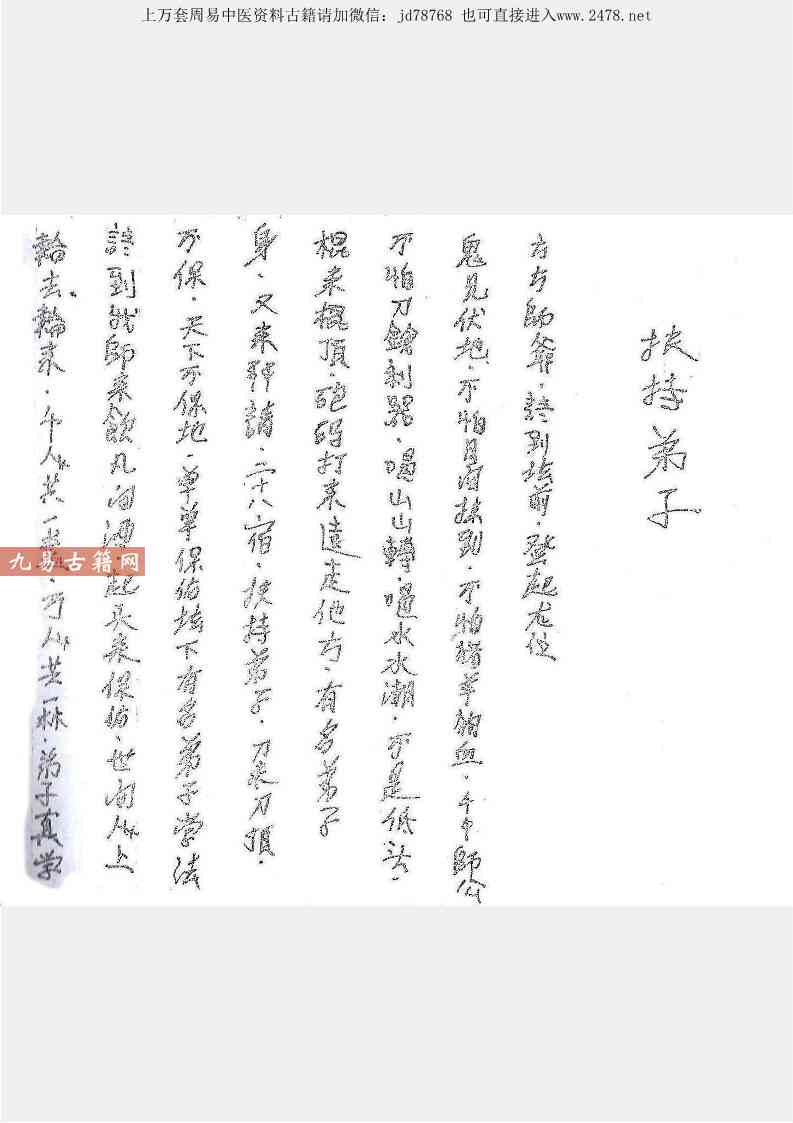 上万套周易中医资料古籍请加微信：jd78768 也可直接进入www.2478.net
扶持弟子
方方師爺·到坛前·登起尤位
鬼見伏地·不怕·不怕猪羊血·千千師公
不怕刀鎗利器·喝山山轉·喝水水潮·不是低头·
棍来棍頂·砲码打来遠走他方·有名弟子
身·又来拜請·二十八宿·扶持弟子·刀来刀頂·
不保·天下不保地·单单保佑坛下有名弟子学法
到師来飲凡间酒·起头来保佑·世间人上
輪去輪来·千人共一·万人共一林·弟子真学
九易古籍网